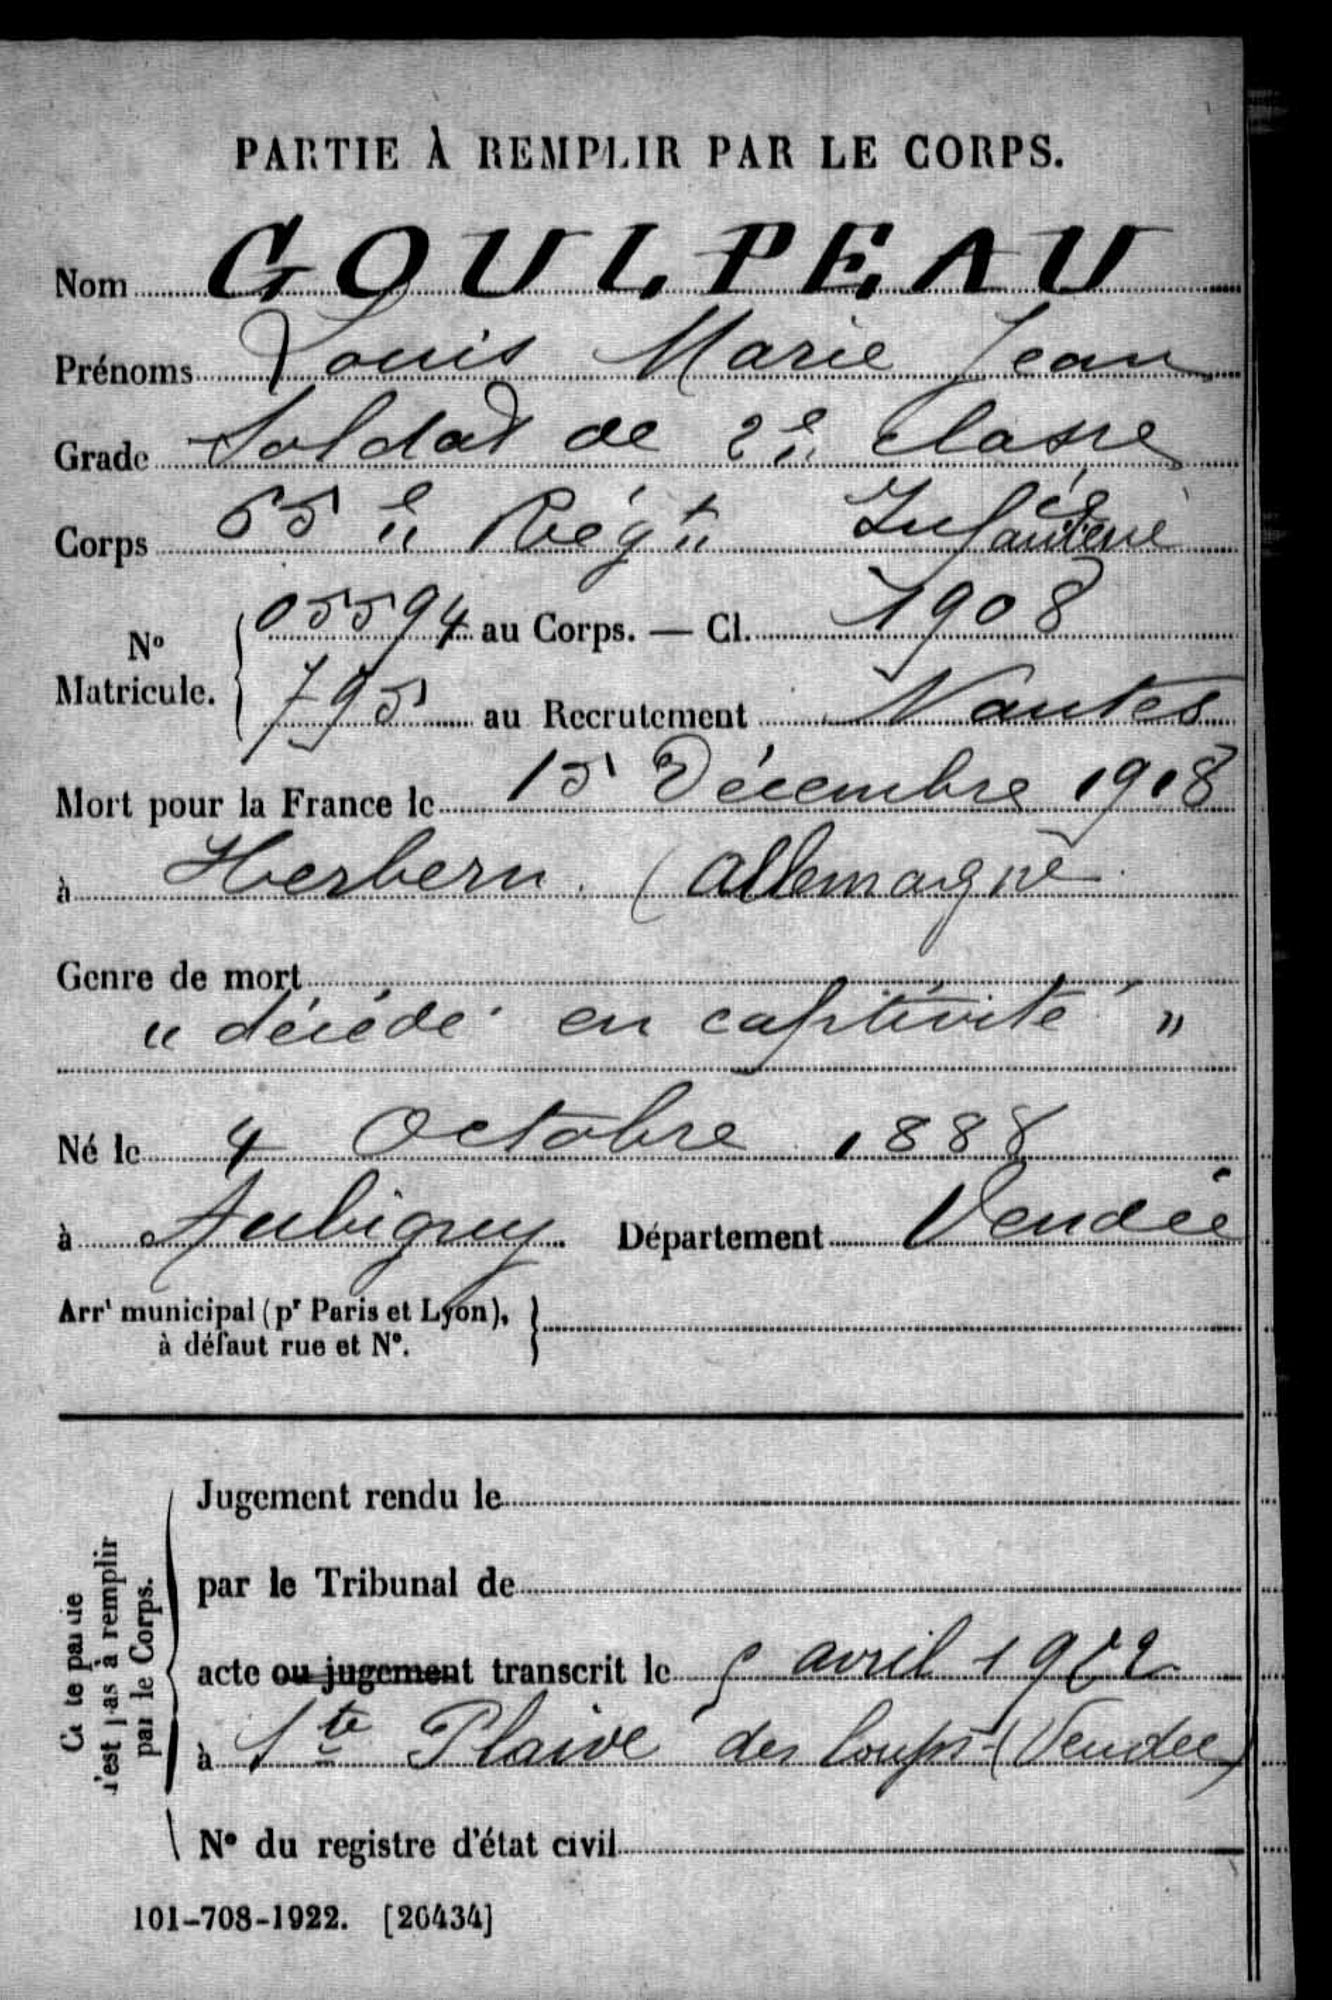 PARTIE À REMPLIR PAR LE CORPS.
Nom GOULPEAU
Prénoms Louis Marie Jean
Grade Soldat de 2e classe
Corps 65e Régt Infanterie
N° Matricule. 05594 au Corps. — Cl. 1908
795 au Recrutement Nantes
Mort pour la France le 15 Décembre 1918
à Herbern (Allemagne
Genre de mort
" décédé en captivité "
Né le 4 Octobre 1888
à Aubigny Département Vendée
Arrt municipal (pr Paris et Lyon),
à défaut rue et N°.
Cette partie n'est pas à remplir par le Corps.
Jugement rendu le
par le Tribunal de
acte ou jugement transcrit le avril 1922
à Ste Flaive des Loups (Vendée)
N° du registre d'état civil
101-708-1922. [26434]